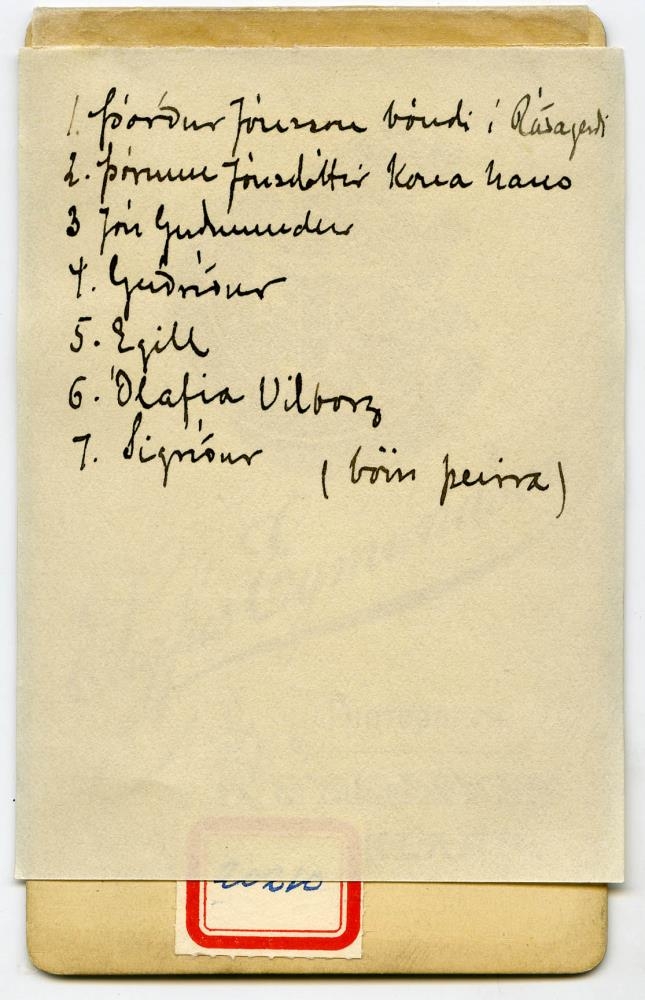 1. Þórður Jónsson bóndi í Ráðagerði
2. Þórunn Jónsdóttir Kona hans
3 Jón Guðmundur
4. Guðríður
5. Egill
6. Ólafia Vilborg
7. Sigríður (börn þeirra)